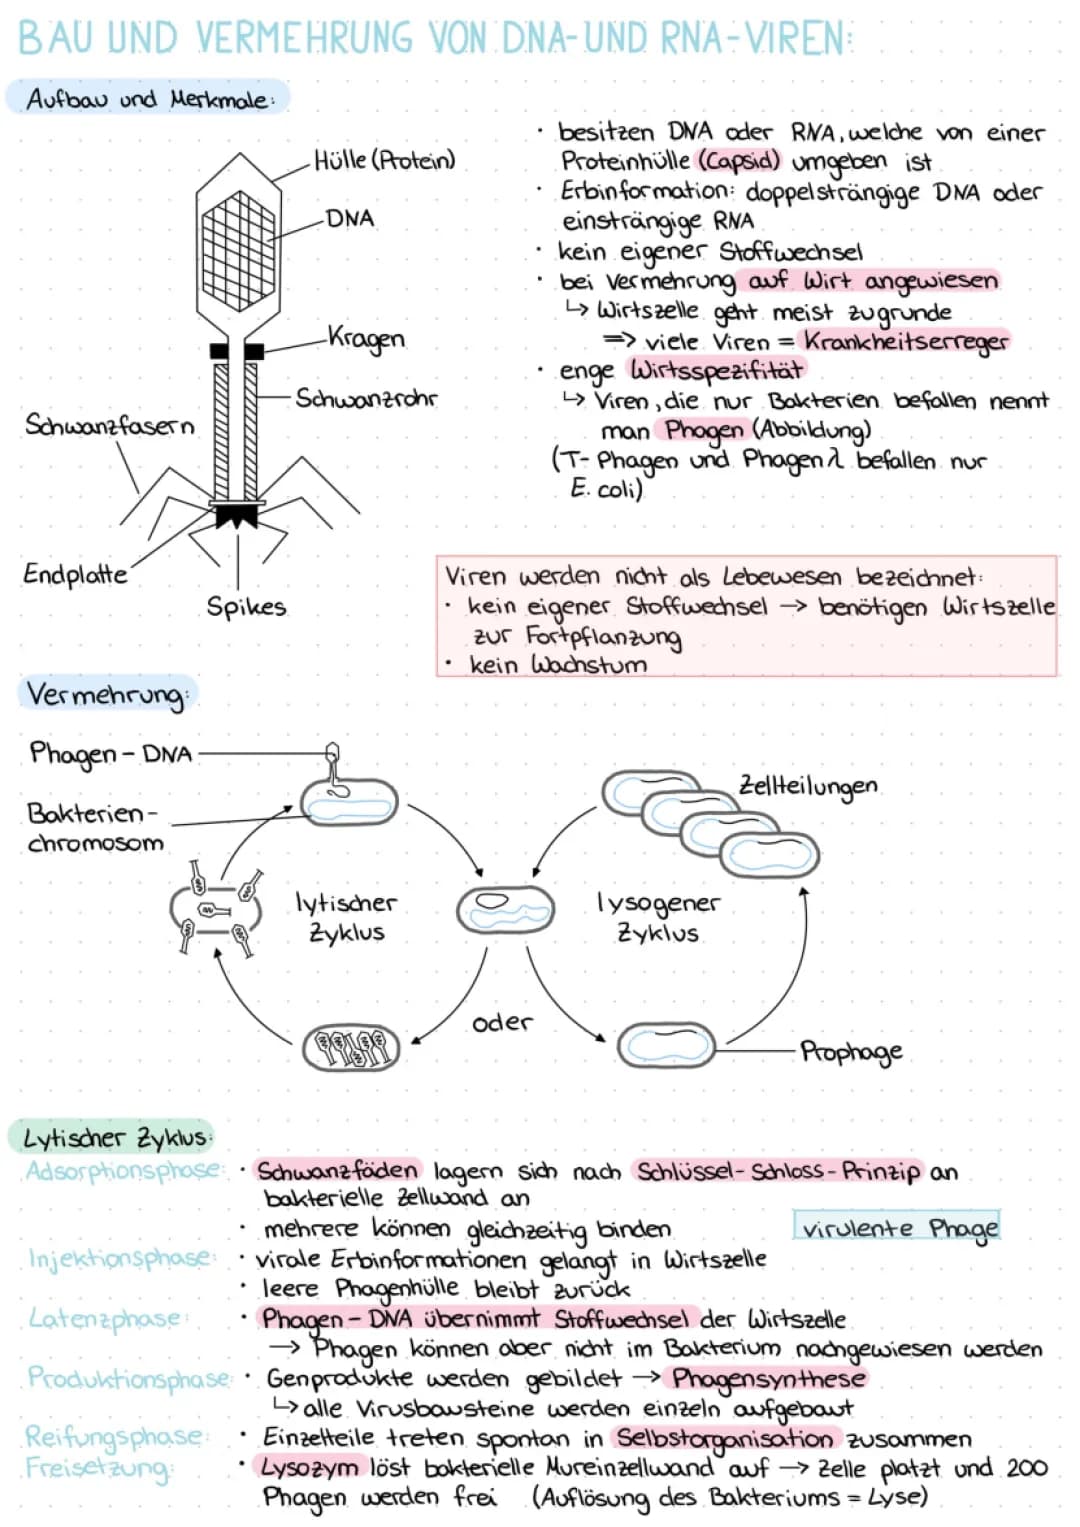 BAU UND VERMEHRUNG VON DNA-UND RNA-VIREN:
Aufbau und Merkmale:
Hülle (Protein)
DNA
Kragen
Schwanzrohr
Schwanzfasern
Endplatte
Spikes
· besitzen DNA oder RNA, welche von einer
Proteinhülle (Capsid) umgeben ist
· Erbinformation: doppelsträngige DNA oder
einsträngige RNA
· kein eigener Stoffwechsel
· bei Vermehrung auf Wirt angewiesen
↳ Wirtszelle geht meist zugrunde
=> viele Viren = Krankheitserreger
· enge Wirtsspezifität
↳ Viren, die nur Bakterien befallen nennt
man Phagen (Abbildung)
(T-Phagen und Phagen λ befallen nur
E. coli)
Viren werden nicht als Lebewesen bezeichnet:
· kein eigener Stoffwechsel → benötigen Wirtszelle
zur Fortpflanzung
· kein Wachstum
Vermehrung:
Phagen-DNA
Bakterien-
chromosom
Zellteilungen
lytischer
Zyklus
lysogener
Zyklus
oder
Prophage
Lytischer Zyklus:
Adsorptionsphase: · Schwanzfäden lagern sich nach Schlüssel-Schloss-Prinzip an
bakterielle Zellwand an
· mehrere können gleichzeitig binden
virulente Phage
Injektionsphase: · virale Erbinformationen gelangt in Wirtszelle
· leere Phagenhülle bleibt zurück
Latenzphase: · Phagen-DNA übernimmt Stoffwechsel der Wirtszelle
→ Phagen können aber nicht im Bakterium nachgewiesen werden
Produktionsphase: · Genprodukte werden gebildet → Phagensynthese
↳ alle Virusbausteine werden einzeln aufgebaut
Reifungsphase: · Einzelteile treten spontan in Selbstorganisation zusammen
Freisetzung: · Lysozym löst bakterielle Mureinzellwand auf → Zelle platzt und 200
Phagen werden frei (Auflösung des Bakteriums = Lyse)